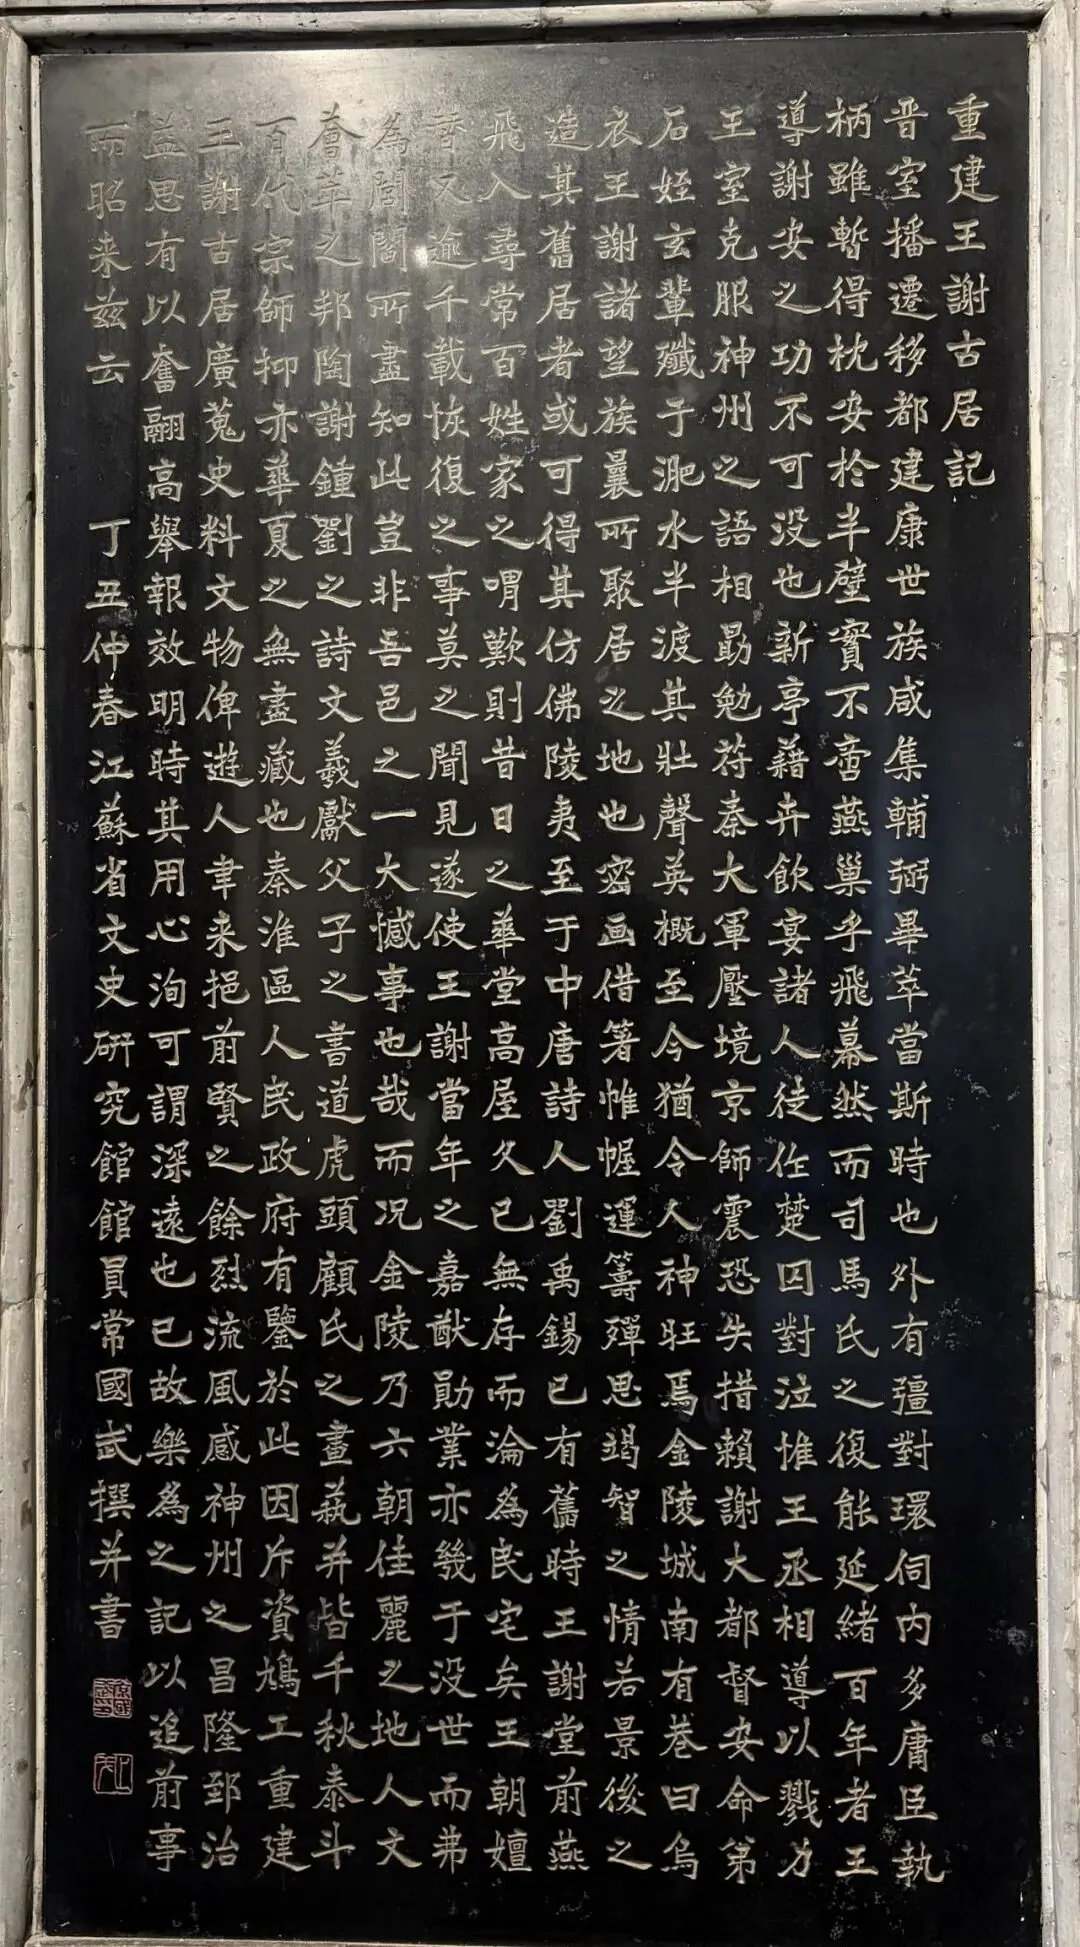 重建王謝古居記
晋室播遷移都建康世族咸集輔弼畢萃當斯時也外有彊對環伺内多庸臣執
柄雖暫得枕安於半壁實不啻燕巢乎飛幕然而司馬氏之復能延緒百年者王
導謝安之功不可没也新亭藉卉飲宴諸人徒作楚囚對泣惟王丞相導以戮力
王室克服神州之語相勗勉苻秦大軍壓境京師震恐失措賴謝大都督安命第
石姪玄輩殲于淝水半渡其壯聲英概至今猶令人神旺焉金陵城南有巷曰烏
衣王謝諸望族曩所聚居之地也宻画借箸惟幄運籌殫思竭智之情若景後之
造其舊居者或可得其仿佛陵夷至于中唐詩人劉禹錫已有舊時王謝堂前燕
飛入尋常百姓家之喟歎則昔日之華堂高屋久已無存而淪為民宅矣王朝嬗
替又逾千載恢復之事莫之聞見遂使王謝當年之嘉猷勛業亦幾于没世而弗
為閭閻所盡知此豈非吾邑之一大憾事也哉而况金陵乃六朝佳麗之地人文
薈萃之邦陶謝鍾劉之詩文羲獻父子之書道虎頭顧氏之畫蓺并皆千秋泰斗
百代宗師抑亦華夏之無盡藏也秦淮區人民政府有鑒於此因斥資鳩工重建
王謝古居廣蒐史料文物俾遊人聿来挹前賢之餘烈流風感神州之昌隆郅治
益思有以奮翮高舉報效明時其用心洵可謂深遠也已故樂為之記以追前事
而昭来兹云 丁丑仲春江蘇省文史研究館館員常國武撰并書